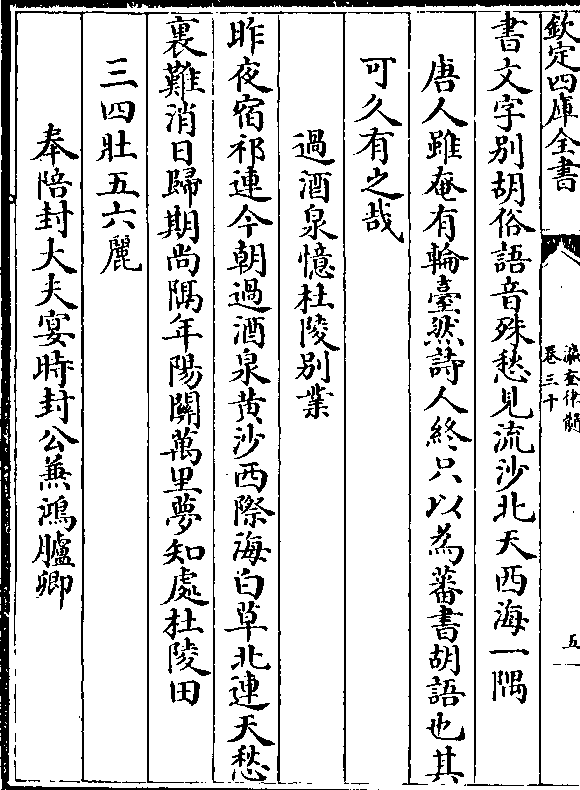 欽定四庫全書
瀛奎律髓
卷三十
五
書文字別胡俗語音殊愁見流沙北天西海一隅
唐人雖奄有輪臺然詩人終只以為蕃書胡語也其
可久有之哉
過酒泉憶杜陵別業
昨夜宿祁連今朝過酒泉黄沙西際海白草北連天愁
裏難消日歸期尚隅年陽關萬里夢知處杜陵田
三四壯五六麗
奉陪封大夫宴時封公兼鴻臚卿